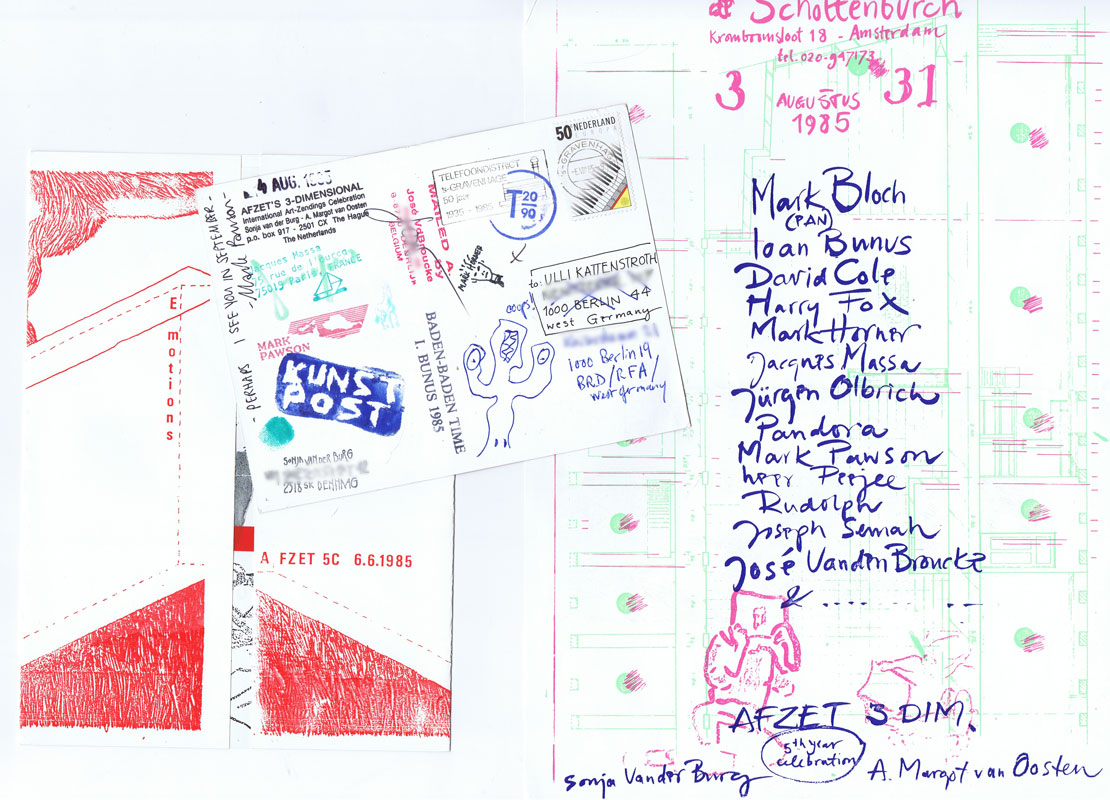 Emotions
A FZET 5C 6.6.1985
4 AUG. 1985
AFZET'S 3-DIMENSIONAL
International Art-Zendings Celebration
Sonja van der Burg - A. Margot van Oosten
p.o. box 917 - 2501 CX The Hague
The Netherlands
- PERHAPS I SEE YOU IN SEPTEMBER -
- Mark Pawson -
Jacques Massa
rue de l'Ourcq
75019 Paris FRANCE
MARK
PAWSON
KUNST
POST
SONJA VAN DER BURG
2518 SK DEN HAAG
MAILED
by
José VdBroucke
BELGIUM
MARK HORNER
BADEN-BADEN TIME
I. BUNUS 1985
TELEFOONDISTRICT
's-GRAVENHAGE
50 jaar
1935 - 1985
T 20
90
50 NEDERLAND
EUROPA
's-GRAVENHAGE
oops!!
to: ULLI KATTENSTROTH
1000 BERLIN 44
west Germany
1000 Berlin 19
BRD/RFA/
west germany
Schottenburch
Kromboomsloot 18 - Amsterdam
tel. 020-947173
3 AUGUSTUS 31
1985
Mark Bloch
(PAN)
Ioan Bunus
David Cole
Harry Fox
Mark Horner
Jacques Massa
Jürgen Olbrich
Pandora
Mark Pawson
heer Peejee
Rudolph
Joseph Semah
José VandenBroucke
& ..........
AFZET 3 DIM.
5th year
celebration
Sonja VanderBurg
A. Margot van Oosten